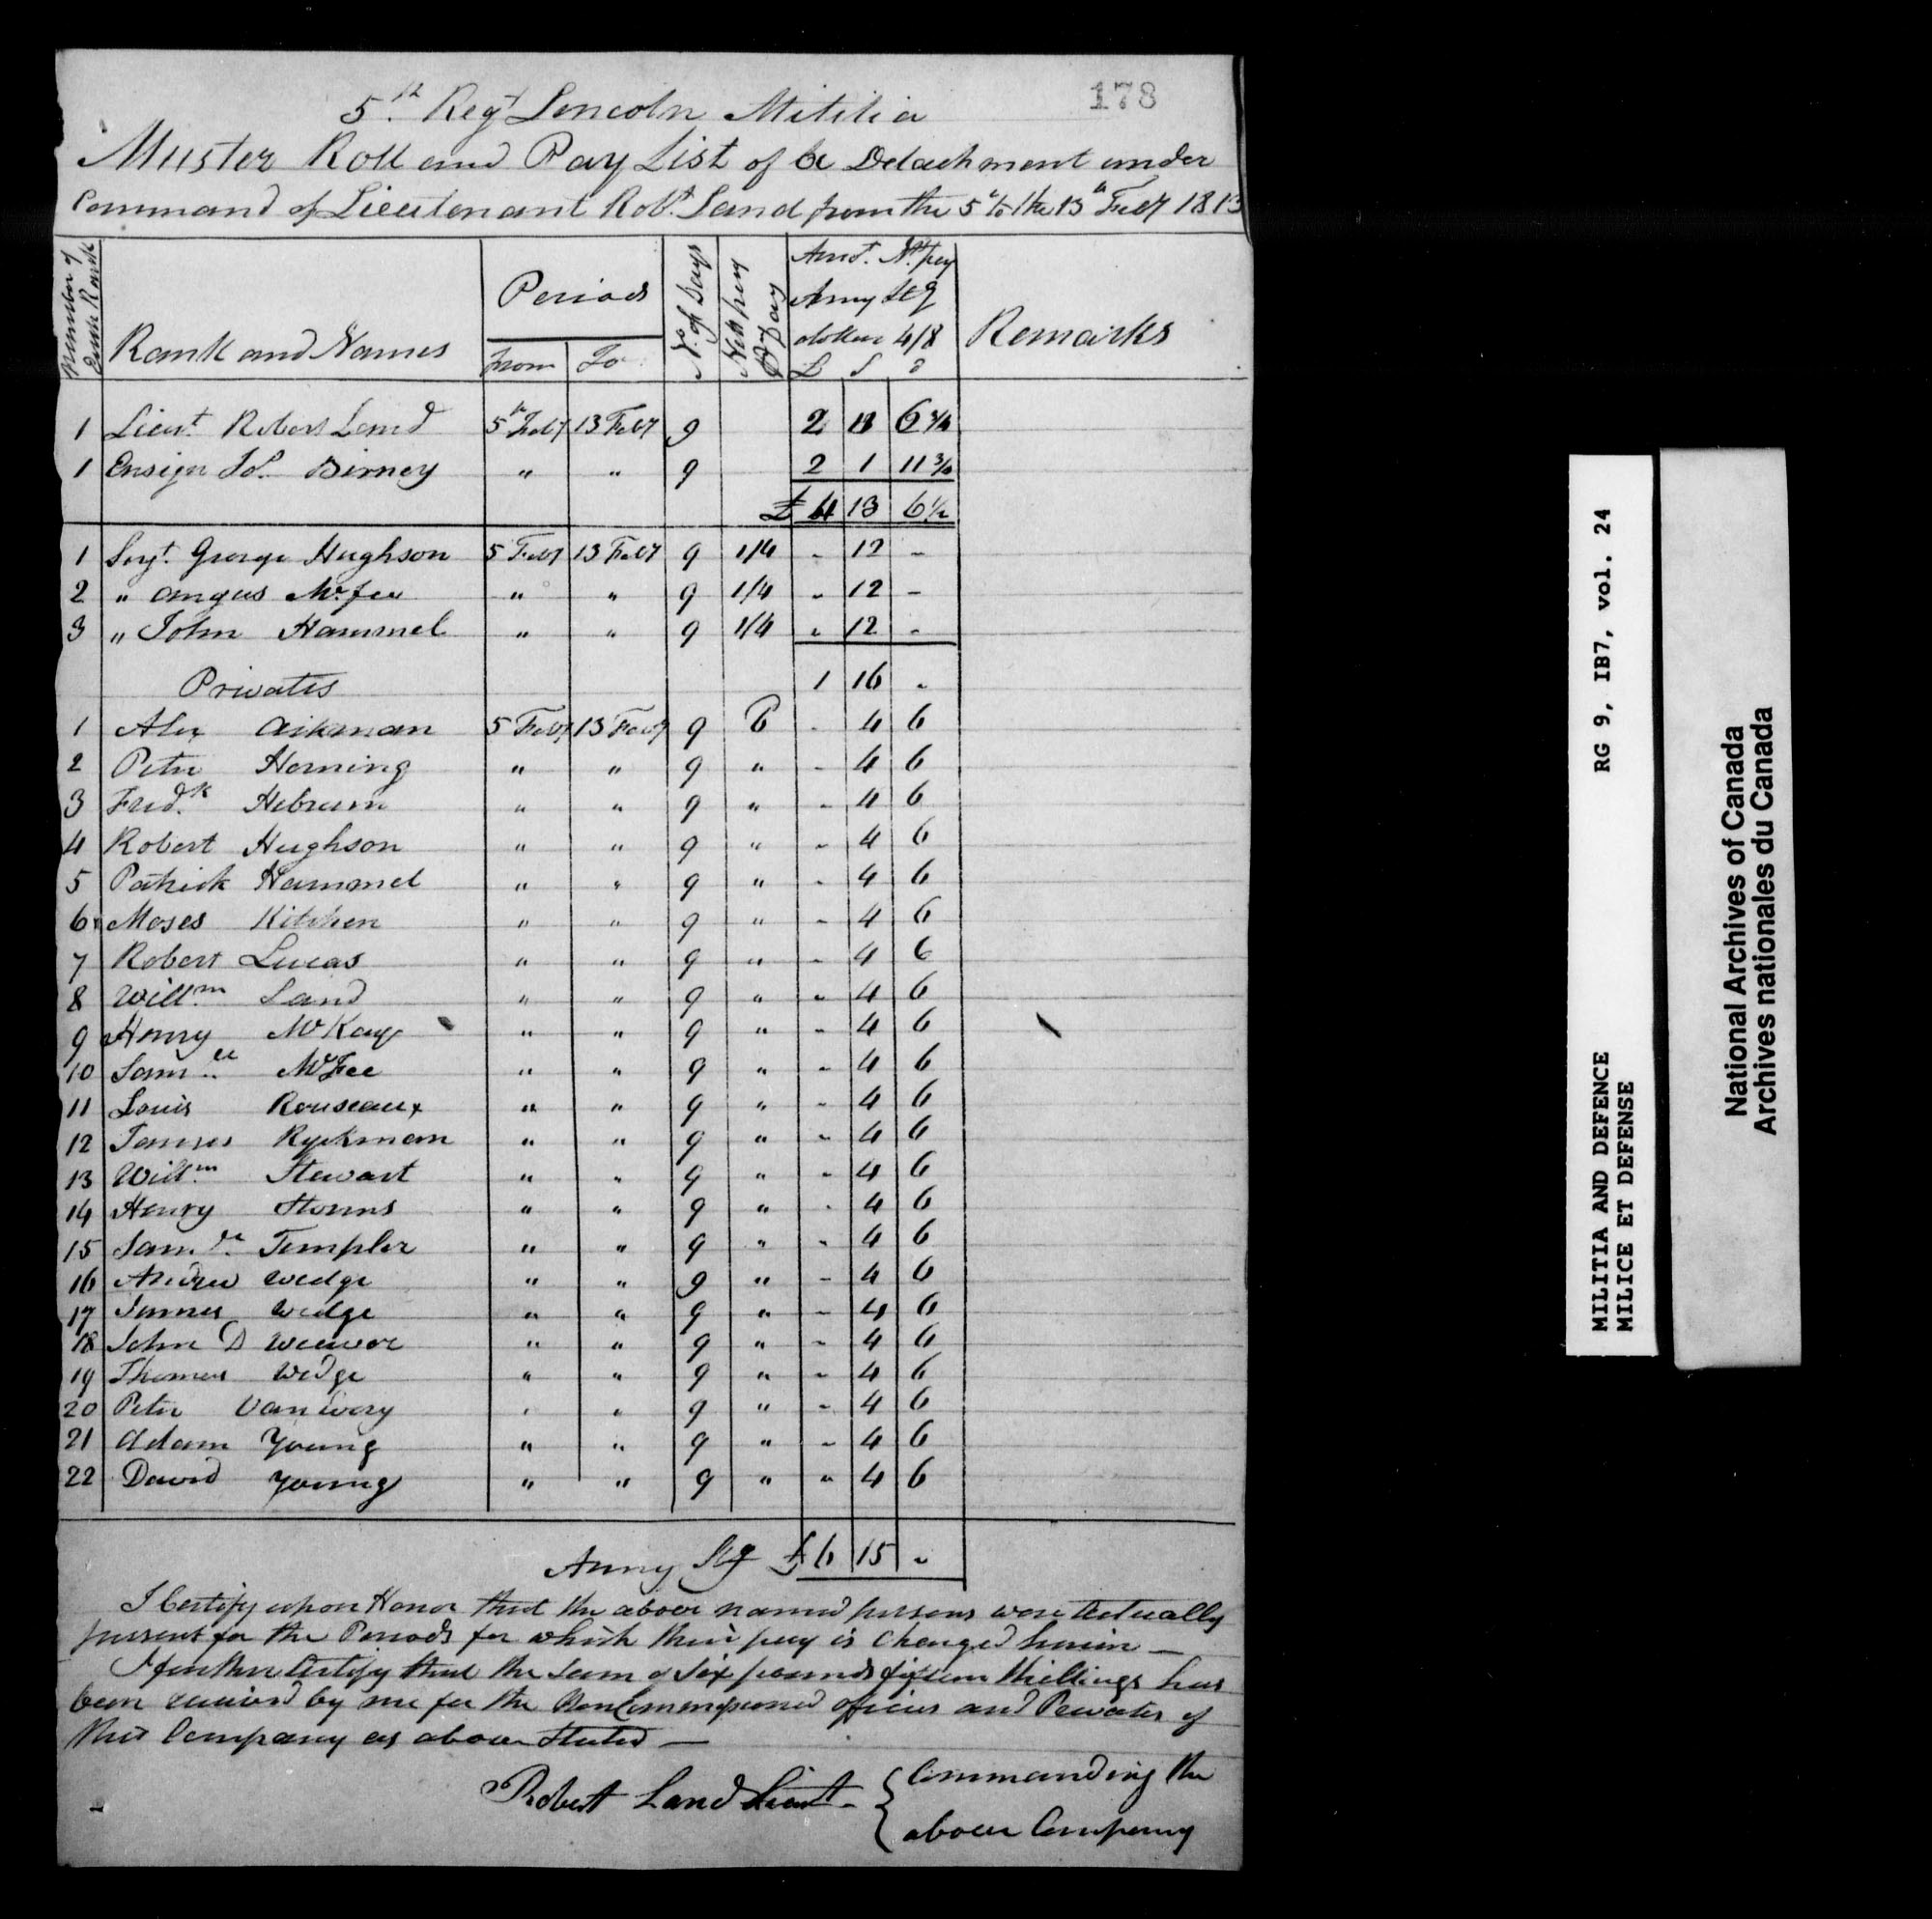 178
5th Regt Lincoln Militia
Muster Roll and Pay List of a Detachment under
Command of Lieutenant Robt Land from the 5th to the 13th Feby 1813
Number of Each Rank
Rank and Names
Periods
From To
No. of Days
Nett pay P Day
Amot. Nt pay
Army Stg
dollar 4/8
£ S d
Remarks
1 Lieut Robert Land 5th Feby 13 Feby 9 2 11 6 3/4
1 Ensign Birney " " 9 2 1 11 3/4
£ 4 13 6 1/2
1 Sergt. George Hughson 5 Feby 13 Feby 9 1/4 - 12 -
2 " Angus McFee " " 9 1/4 - 12 -
3 " John Hammel " " 9 1/4 - 12 -
Privates 1 16 -
1 Alex Aikman 5 Feby 13 Feby 9 6 - 4 6
2 Peter Horning " " 9 " - 4 6
3 Fredk Hebrum " " 9 " - 4 6
4 Robert Hughson " " 9 " - 4 6
5 Patrick Hammel " " 9 " - 4 6
6 Moses Kitchen " " 9 " - 4 6
7 Robert Lucas " " 9 " - 4 6
8 Willm Land " " 9 " " 4 6
9 Henry McKay " " 9 " - 4 6
10 Samll McFee " " 9 " - 4 6
11 Louis Rouseaux " " 9 " - 4 6
12 James Ryckman " " 9 " - 4 6
13 Willm Stewart " " 9 " - 4 6
14 Henry Storms " " 9 " - 4 6
15 Saml Templer " " 9 " - 4 6
16 Andrew Wedge " " 9 " - 4 6
17 James Wedge " " 9 " - 4 6
18 John D Weaver " " 9 " - 4 6
19 Thomas Wedge " " 9 " - 4 6
20 Peter Vanevery " " 9 " - 4 6
21 Adam Young " " 9 " - 4 6
22 David Young " " 9 " " 4 6
Army Stg £ 6 15 -
I Certify upon Honor that the above named persons were Actually
present for the Periods for which their pay is Charged herein —
I further Certify that the Sum of Six pounds fifteen Shillings has
been received by me for the NonCommissioned officers and Privates of
this Company as above Stated —
Robert Land Lieut - { Commanding the
above Company
MILITIA AND DEFENCE RG 9, IB7, vol. 24
MILICE ET DEFENSE
National Archives of Canada
Archives nationales du Canada